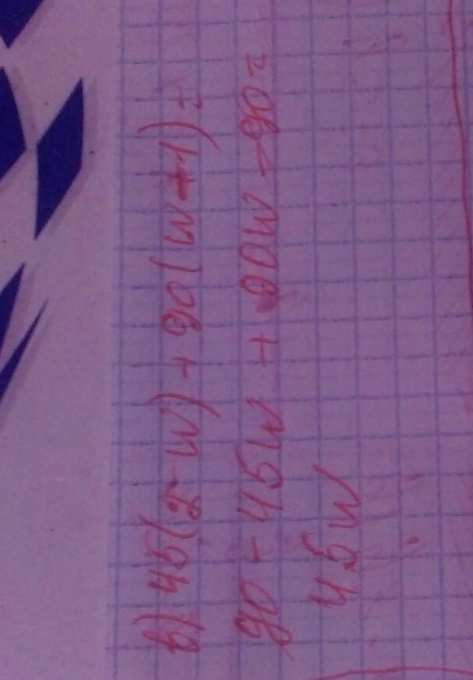 в) 45(2-w)+90(w-1)=
90-45w+90w-90=
45w